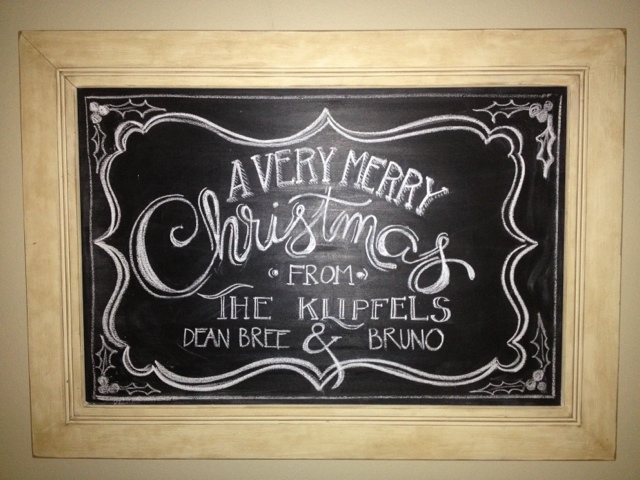 A VERY MERRY
Christmas
FROM
THE KLIPFELS
DEAN BREE & BRUNO